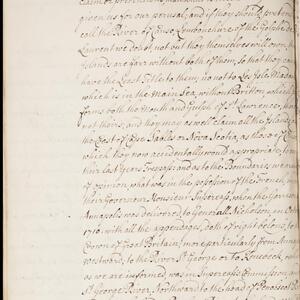 given us for our perusal, and if they should pretend to
call the River of Canso, Lembouchere of the Golph de
Laurent we do not, nor do they themselves will own, the
Islands are fair without both of them, so that they can
have the Least Title to them no not to Les Isle Madam
which is in the Main Sea, without Britton, which
forms both the Mouth and Gulph of St Laurence, that
not theirs, and they may as well claim all the Islands
the East of Cape Sables or Nova Scotia, as those of
which they now accidentally would appropriate, from
this last Years Trespass and as to the Boundaries, we are
of opinion what was in the possession of the French, and
their Governour Monsieur Supercass, when the Garrison
Annapolis was delivered to Generall Nicholson, in Octo
1710 with all the appendages, doth of right belong to
Crown of Great Britain, more particularly from Anna
westward, to the River St George or to Kenebeck,
as we are informed was in Supercass Commission, and
St George River, Northward to the head of Penobscot